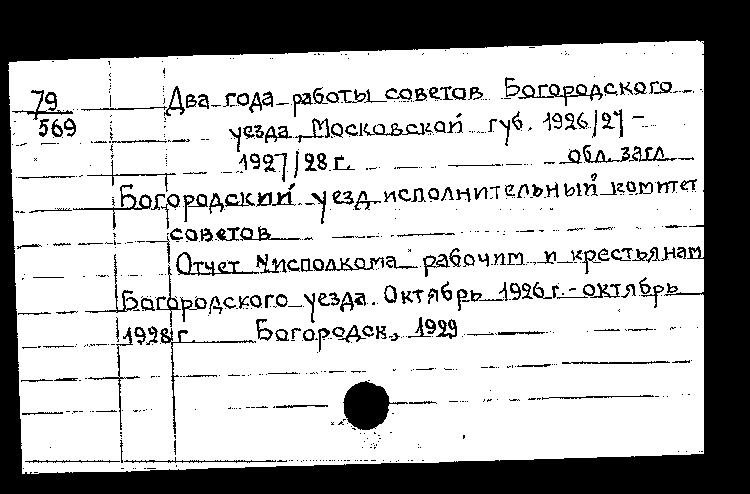 79
569
Два года работы советов Богородского
уезда, Московской губ. 1926/27 –
1927/28 г. обл. загл.
Богородский уезд. исполнительный комитет
советов
Отчет Уисполкома рабочим и крестьянам
Богородского уезда. Октябрь 1926 г. - октябрь
1928 г. Богородск, 1929